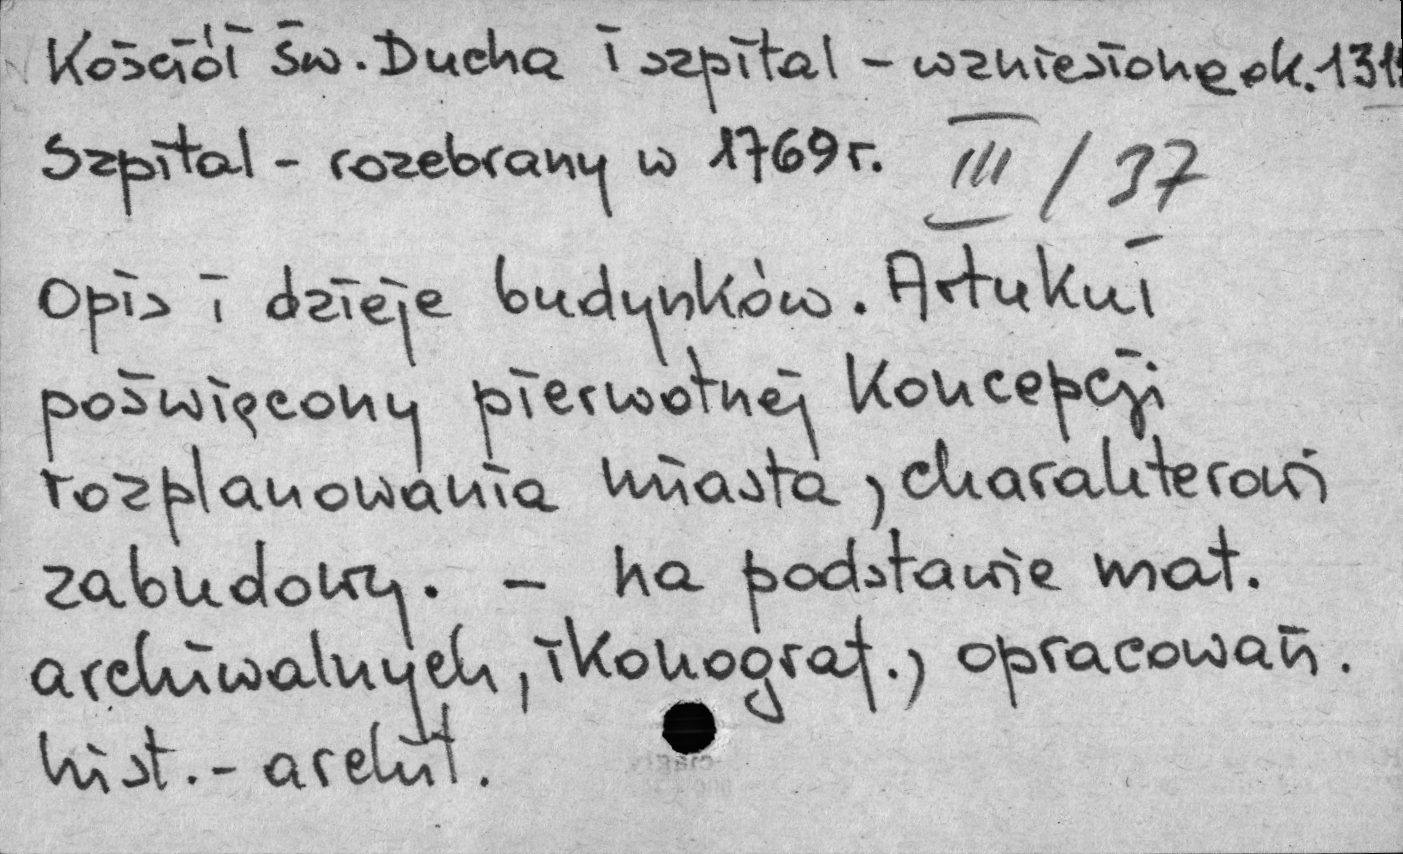 Kościół św. Ducha i szpital – wzniesione ok. 131
Szpital – rozebrany w 1769 r. III / 37
Opis i dzieje budynków. Artukuł
poświęcony pierwotnej koncepcji
rozplanowania miasta, charakterowi
zabudowy. – na podstawie mat.
archiwalnych, ikonograf., opracowań.
hist. – archit.